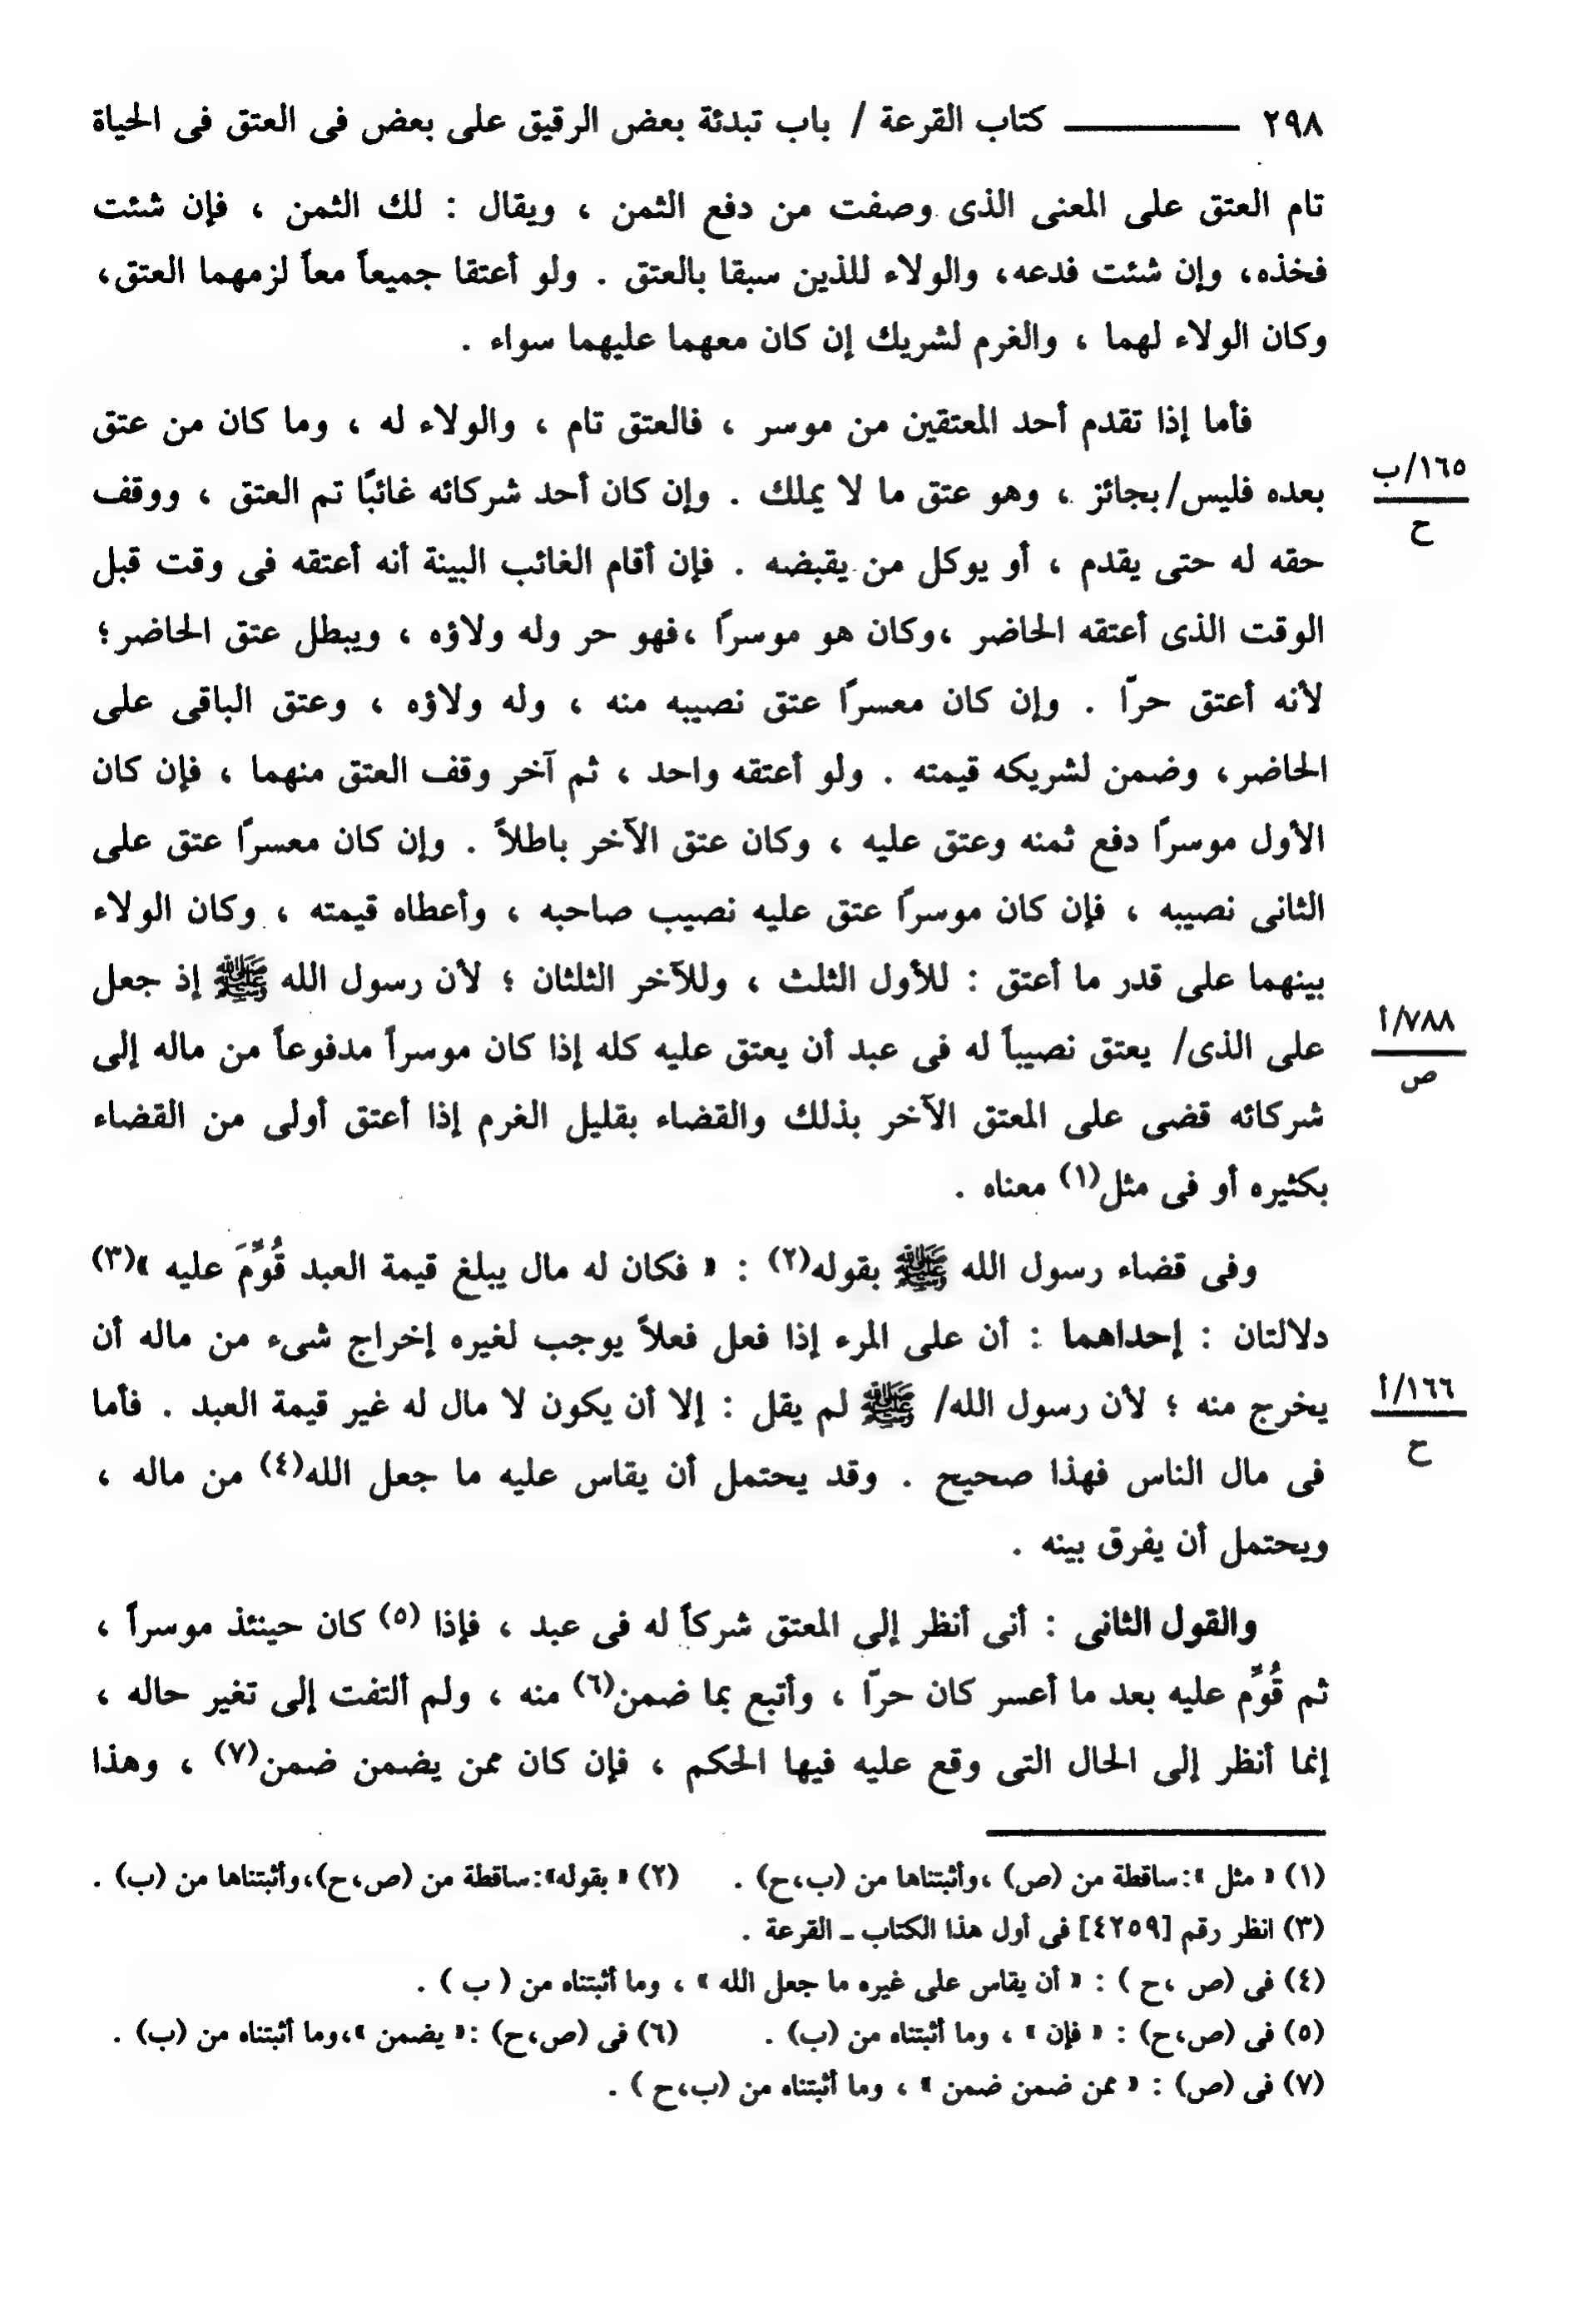 ٢٩٨ ــــــــ كتاب القرعة / باب تبدئة بعض الرقيق على بعض فى العتق فى الحياة
تام العتق على المعنى الذى وصفت من دفع الثمن ، ويقال : لك الثمن ، فإن شئت
فخذه، وإن شئت فدعه، والولاء للذين سبقا بالعتق . ولو أعتقا جميعاً معاً لزمهما العتق،
وكان الولاء لهما ، والغرم لشريك إن كان معهما عليهما سواء .
فأما إذا تقدم أحد المعتقين من موسر ، فالعتق تام ، والولاء له ، وما كان من عتق
١٦٥/ب
ح
بعده فليس/بجائز ، وهو عتق ما لا يملك . وإن كان أحد شركائه غائبًا تم العتق ، ووقف
حقه له حتى يقدم ، أو يوكل من يقبضه . فإن أقام الغائب البينة أنه أعتقه فى وقت قبل
الوقت الذى أعتقه الحاضر ،وكان هو موسرًا ،فهو حر وله ولاؤه ، ويبطل عتق الحاضر؛
لأنه أعتق حرّا . وإن كان معسرًا عتق نصيبه منه ، وله ولاؤه ، وعتق الباقى على
الحاضر، وضمن لشريكه قيمته . ولو أعتقه واحد ، ثم آخر وقف العتق منهما ، فإن كان
الأول موسرًا دفع ثمنه وعتق عليه ، وكان عتق الآخر باطلاً . وإن كان معسرًا عتق على
الثانى نصيبه ، فإن كان موسرًا عتق عليه نصيب صاحبه ، وأعطاه قيمته ، وكان الولاء
بينهما على قدر ما أعتق : للأول الثلث ، وللآخر الثلثان ؛ لأن رسول الله ﷺ إذ جعل
٧٨٨/أ
ص
على الذى/ يعتق نصيباً له فى عبد أن يعتق عليه كله إذا كان موسراً مدفوعاً من ماله إلى
شركائه قضى على المعتق الآخر بذلك والقضاء بقليل الغرم إذا أعتق أولى من القضاء
بكثيره أو فى مثل(١) معناه .
وفى قضاء رسول الله ﷺ بقوله(٢) : « فكان له مال يبلغ قيمة العبد قُوِّمَ عليه »(٣)
دلالتان : إحداهما : أن على المرء إذا فعل فعلاً يوجب لغيره إخراج شىء من ماله أن
١٦٦/أ
ح
يخرج منه ؛ لأن رسول الله/ ﷺ لم يقل : إلا أن يكون لا مال له غير قيمة العبد . فأما
فى مال الناس فهذا صحيح . وقد يحتمل أن يقاس عليه ما جعل الله(٤) من ماله ،
ويحتمل أن يفرق بينه .
والقول الثانى : أنى أنظر إلى المعتق شركاً له فى عبد ، فإذا (٥) كان حينئذ موسراً ،
ثم قُوِّم عليه بعد ما أعسر كان حرّا ، وأتبع بما ضمن(٦) منه ، ولم ألتفت إلى تغير حاله ،
إنما أنظر إلى الحال التى وقع عليه فيها الحكم ، فإن كان ممن يضمن ضمن(٧) ، وهذا
(١) « مثل »:ساقطة من (ص) ،وأثبتناها من (ب،ح) . (٢) « بقوله»:ساقطة من (ص،ح)،وأثبتناها من (ب) .
(٣) انظر رقم [٤٢٥٩] فى أول هذا الكتاب ـ القرعة .
(٤) فى (ص ،ح ) : « أن يقاس على غيره ما جعل الله » ، وما أثبتناه من ( ب ) .
(٥) فى (ص،ح) : « فإن » ، وما أثبتناه من (ب) . (٦) فى (ص،ح) :« يضمن »،وما أثبتناه من (ب) .
(٧) فى (ص) : « ممن ضمن ضمن » ، وما أثبتناه من (ب،ح ) .